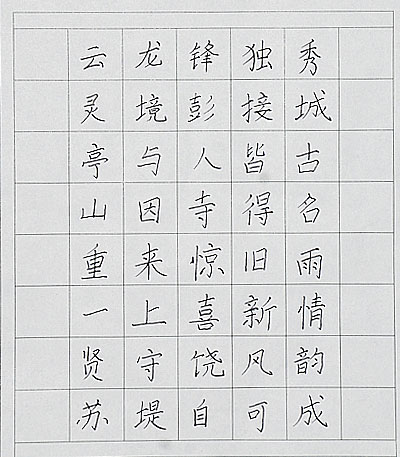 云龙锋独秀
灵境彭接城
亭与人皆古
山因寺得名
重来惊旧雨
一上喜新情
贤守饶风韵
苏堤自可成